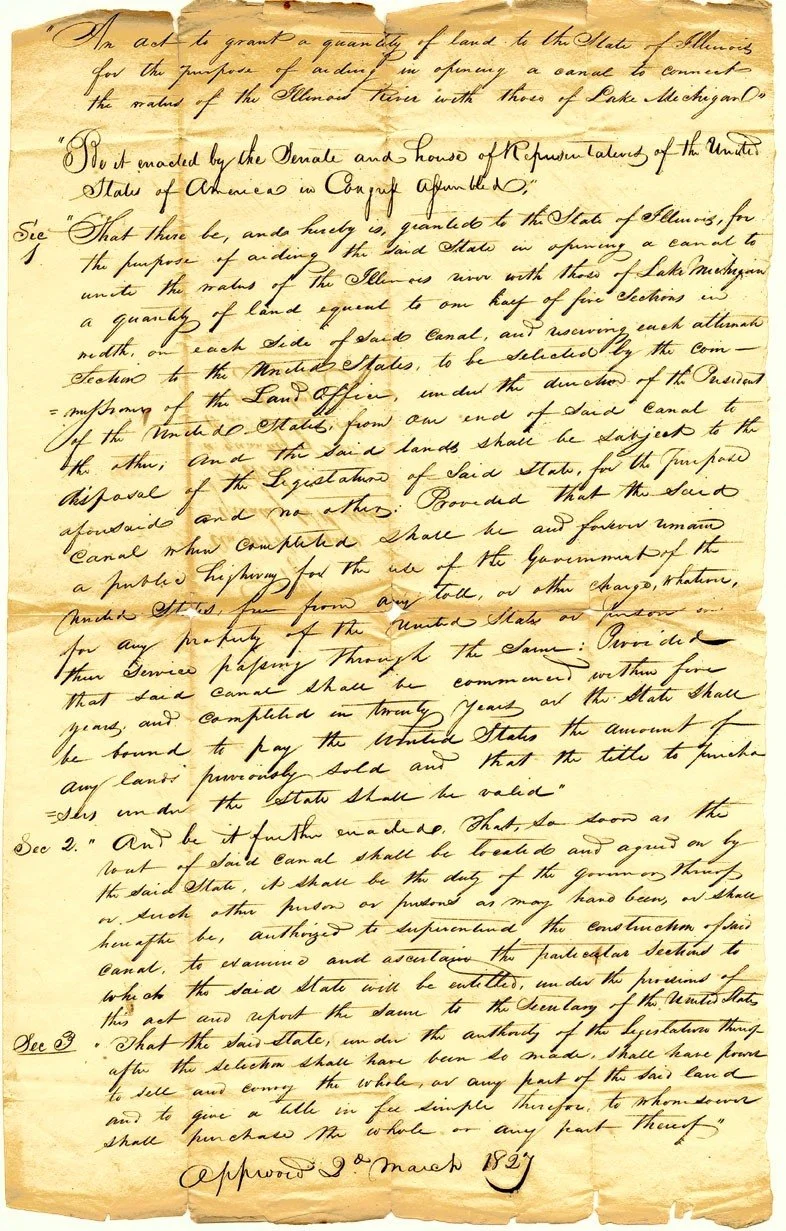 "An act to grant a quantity of land to the State of Illinois
for the purpose of aiding in opening a canal to connect
the waters of the Illinois River with those of Lake Michigan"
"Be it enacted by the Senate and house of Representatives of the United
States of America in Congress assembled,"
Sec 1 "That there be, and hereby is, granted to the State of Illinois, for
the purpose of aiding the said State in opening a canal to
unite the waters of the Illinois river with those of Lake Michigan
a quantity of land equal to one half of five Sections in
width, on each Side of Said Canal, and reserving each alternate
Section to the United States, to be Selected by the com-
=missioner of the Land Office, under the direction of the President
of the United States, from one end of Said Canal to
the other; And the said lands shall be subject to the
disposal of the Legislature of Said State, for the Purpose
aforesaid and no other: Provided that the Said
Canal when completed shall be and forever remain
a public highway for the use of the Government of the
United States, free from any toll, or other charge, whatever,
for any property of the United States or person in
their Service passing through the Same: Provided
that said canal shall be commenced within five
years, and completed in twenty years or the State shall
be bound to pay the United States the amount of
any lands previously sold and that the title to purcha
=sers under the State shall be valid"
Sec 2. "And be it further enacted. That, so soon as the
rout of Said canal shall be located and agreed on by
the said State, it shall be the duty of the governor thereof
or such other person or persons as may have been, or shall
hereafter be, authorized to superintend the construction of said
canal, to examine and ascertain the particular Sections to
which the said State will be entitled, under the provisions of
this act and report the same to the Secretary of the United States
Sec 3 "That the said State, under the authority of the legislature thereof
after the selection shall have been so made, shall have power
to sell and convey the whole, or any part of the said land
and to give a title in fee simple therefor, to whomsoever
shall purchase the whole or any part thereof"
Approved 2d March 1827